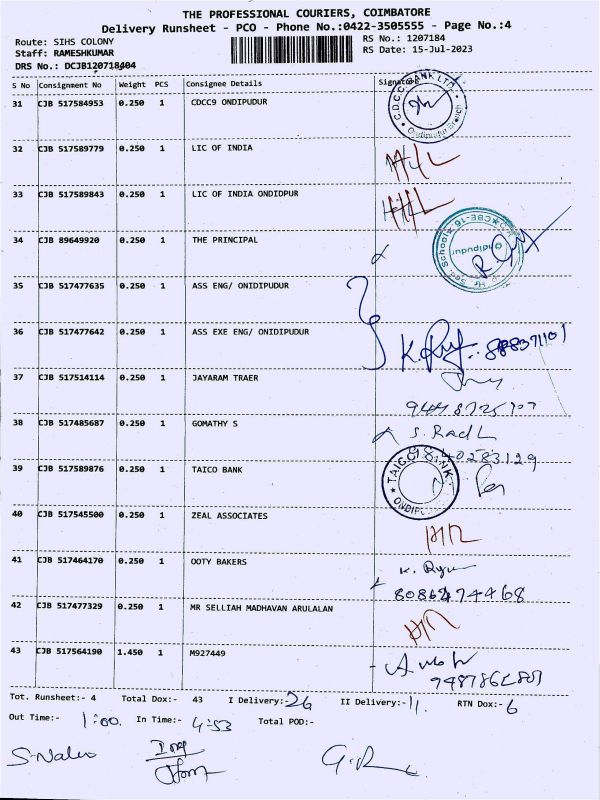 THE PROFESSIONAL COURIERS, COIMBATORE
Delivery Runsheet - PCO - Phone No.:0422-3505555 - Page No.:4
Route: SIHS COLONY RS No.: 1207184
Staff: RAMESHKUMAR RS Date: 15-Jul-2023
DRS No.: DCJB120718404
S No Consignment No Weight PCS Consignee Details Signature
31 CJB 517584953 0.250 1 CDCC9 ONDIPUDUR
C.D.C.C. BANK LTD. Ondipudur Branch
32 CJB 517589779 0.250 1 LIC OF INDIA
33 CJB 517589843 0.250 1 LIC OF INDIA ONDIDPUR
34 CJB 89649920 0.250 1 THE PRINCIPAL
Hr. Sec. School CBE-16 Ondipudur
35 CJB 517477635 0.250 1 ASS ENG/ ONIDIPUDUR
36 CJB 517477642 0.250 1 ASS EXE ENG/ ONIDIPUDUR
37 CJB 517514114 0.250 1 JAYARAM TRAER
38 CJB 517485687 0.250 1 GOMATHY S
39 CJB 517589876 0.250 1 TAICO BANK
TAICO BANK
40 CJB 517545500 0.250 1 ZEAL ASSOCIATES
41 CJB 517464170 0.250 1 OOTY BAKERS
8086474468
42 CJB 517477329 0.250 1 MR SELLIAH MADHAVAN ARULALAN
43 CJB 517564190 1.450 1 M927449
Tot. Runsheet:- 4 Total Dox:- 43 I Delivery:- 26 II Delivery:- 11 RTN Dox:- 6
Out Time:- 1:00 In Time:- 4:53 Total POD:-